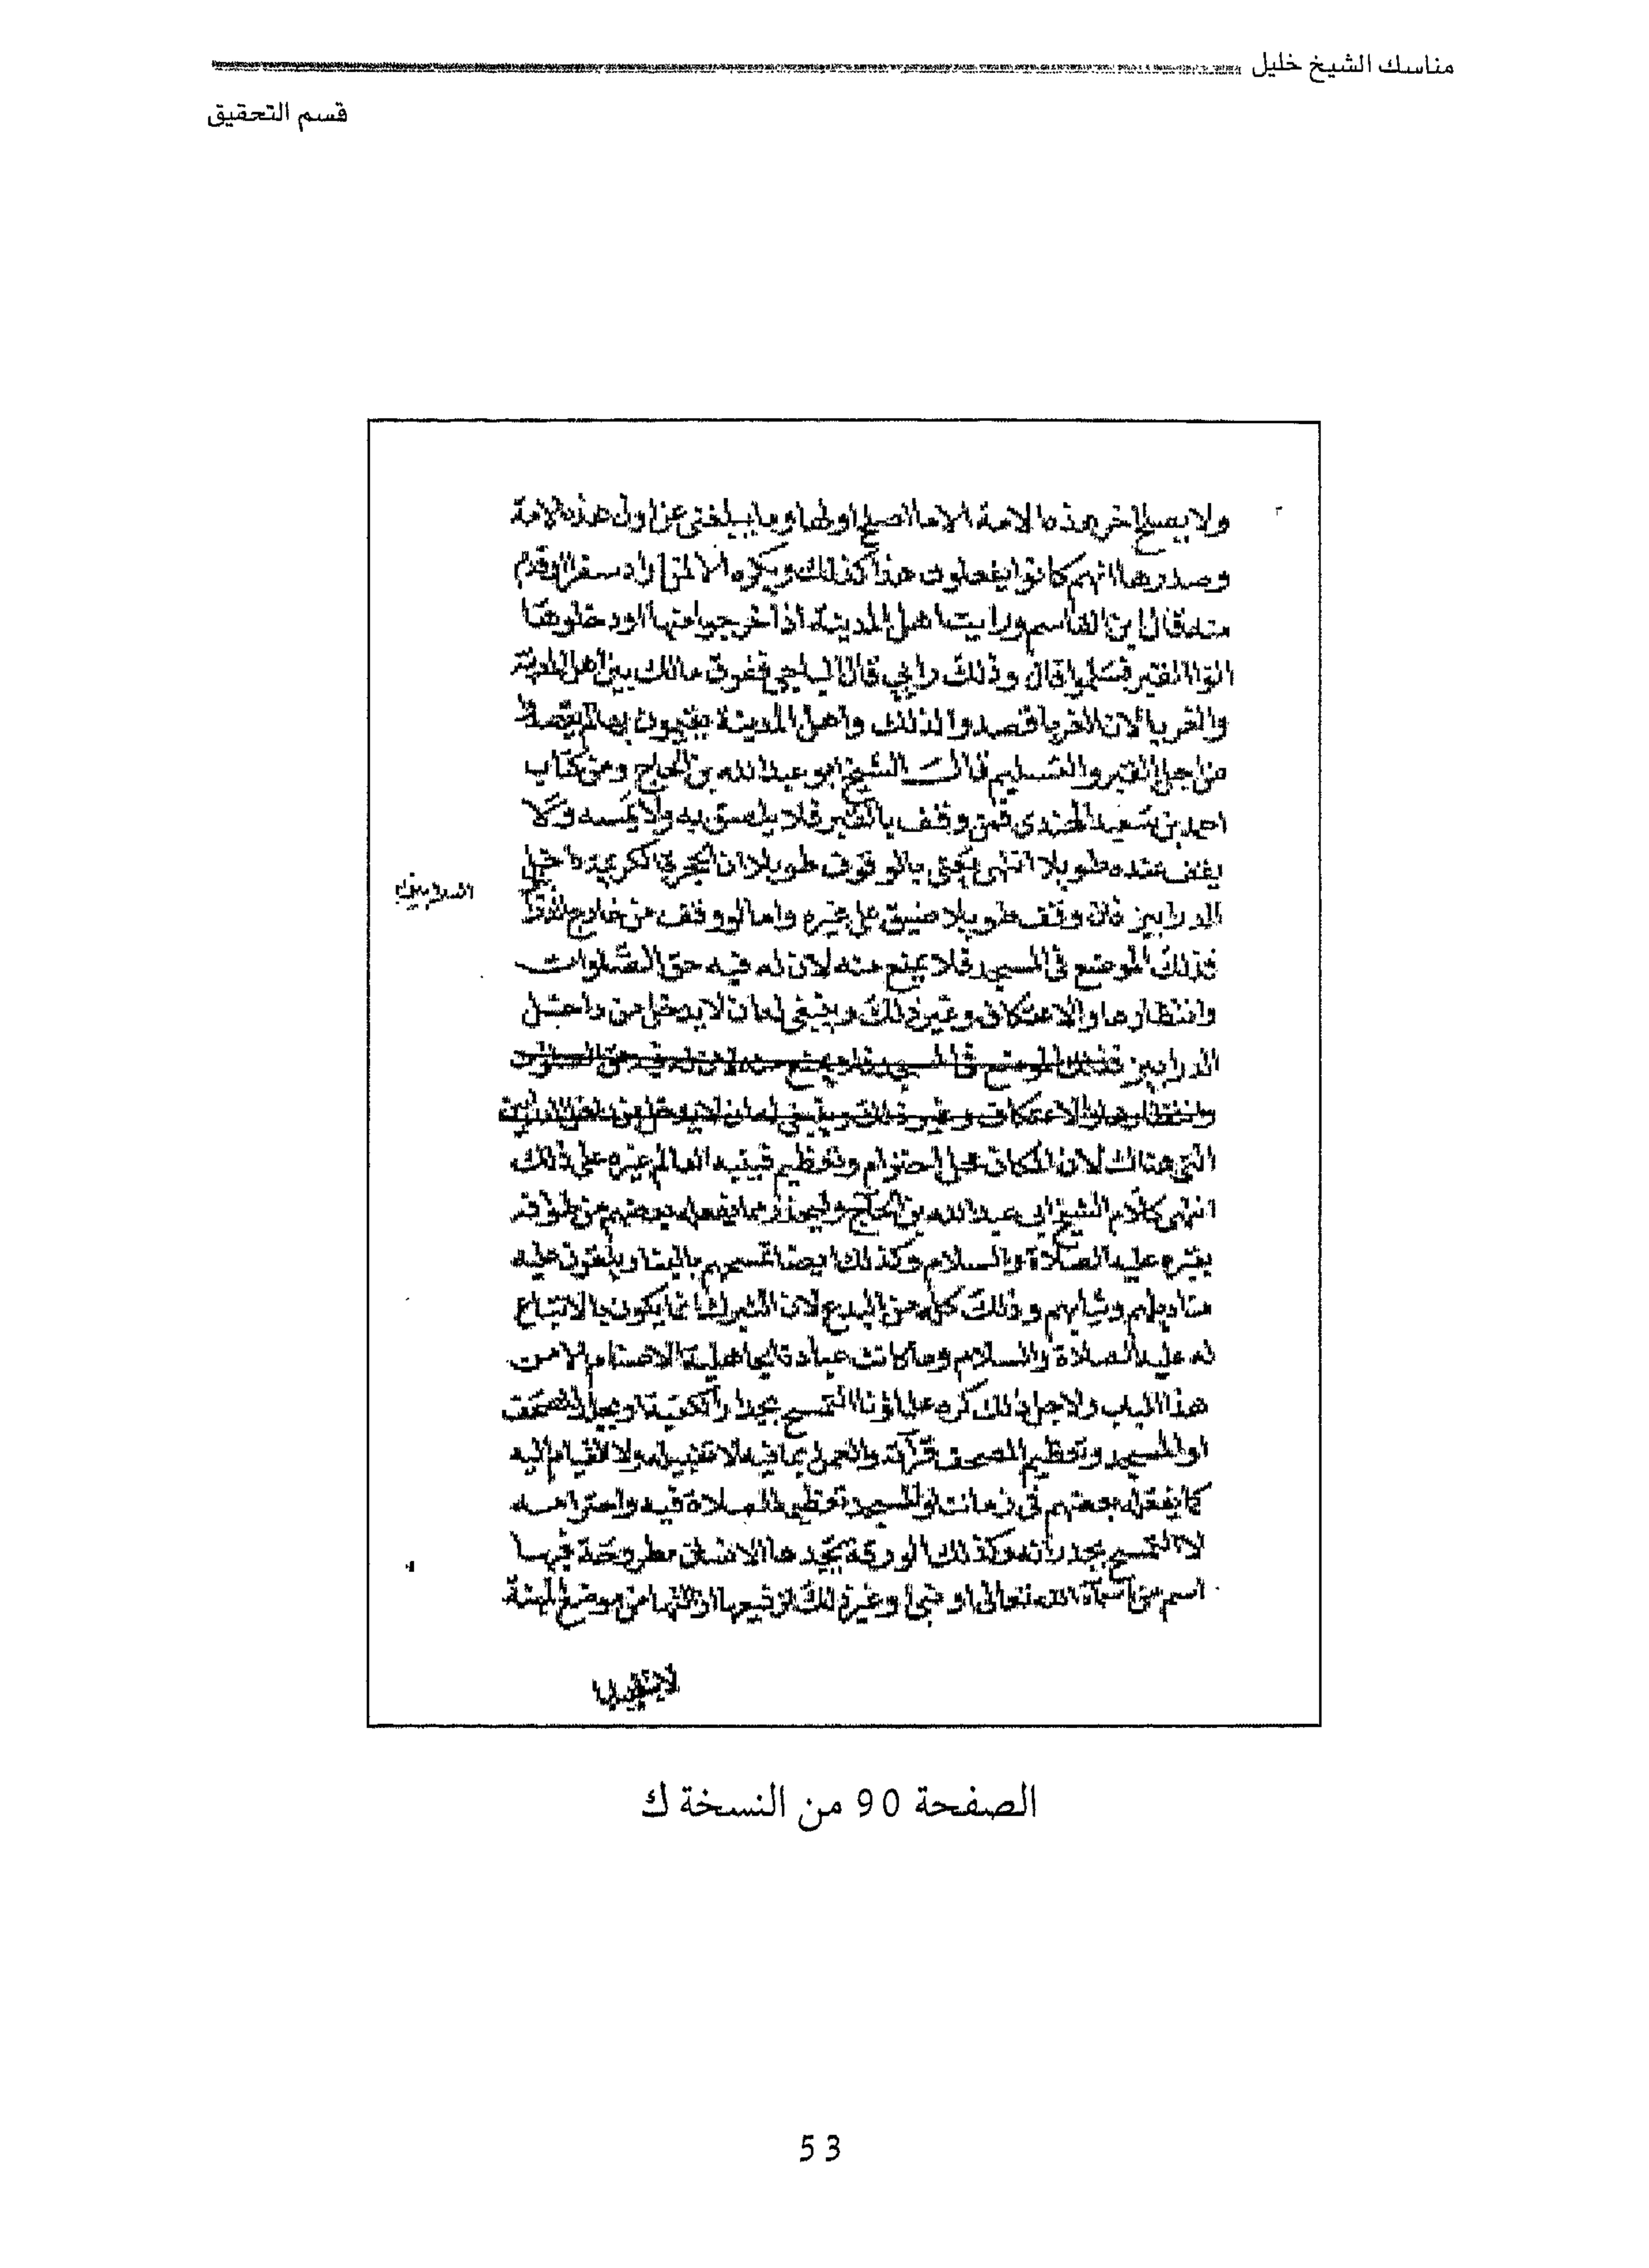 مناسك الشيخ خليل
قسم التحقيق
ولا يصلح اخر هذه الامة الا ما اصلح اولها وما يبلغنى عن اول هذه الامة
وصدرها انهم كانوا يفعلون هذا كذلك ويكره الا لمن اراد سفرا او قدم
منه قال ابن القاسم ورايت اهل المدينة اذا خرجوا منها او دخلوها
اتوا القبر فسلموا قال وذلك رايي قال الباجي ففرق مالك بين اهل المدينة
والغربا لان الغربا قصدوا لذلك واهل المدينة مقيمون بها لم يقصدوا
من اجل القبر والتسليم قال الشيخ ابو عبد الله بن الحاج ومن كتاب
احمد بن سعيد الهندى فمن وقف بالقبر فلا يلصق به ولا يمسه ولا
يقف عنده طويلا انتهى يعنى بالوقوف طويلا ان الحجرة الكريمة داخل
الدرابيز فان وقف طويلا ضيق على غيره واما لو وقف من خارج
فذلك الموضع فى المسجد فلا يمنع منه لان له فيه حق الصلوات
وانتظارها والاعتكاف وغير ذلك وينبغى له ان لا يدخل من داخل
الدرابيز فذلك الموضع فى المسجد فلا يمنع منه لان له فيه حق الصلوات
وانتظارها والاعتكاف وغير ذلك وينبغى له ان لا يدخل من داخل
التى هناك لان المكان محل احترام وتعظيم فينبه العالم غيره على ذلك
انتهى كلام الشيخ ابى عبد الله بن الحاج وليحذر مما يفعله بعضهم من طوافه
بقبره عليه الصلاة والسلام وكذلك ايضا تمسحهم بالبنا ويلقون عليه
مناديلهم وثيابهم وذلك كله من البدع لان التبرك انما يكون بالاتباع
له عليه الصلاة والسلام وما كانت عبادة الجاهلية الاصنام الا من
هذا الباب ولاجل ذلك كره علماؤنا التمسح بجدار الكعبة او بجدار المصحف
او المسجد وتعظيم المصحف قرآته والعمل بما فيه لا تقبيله ولا القيام اليه
كما يفعله بعضهم فى زماننا والمسجد تعظيمه الصلاة فيه واحترامه
لا التمسح بجدرانه وكذلك الورقة يجدها الانسان مطروحة فيها
اسم من اسماء الله تعالى او نبى او غير ذلك ترفيعها ازالتها من موضع المهنة
لا تقبيلها
الصفحة 90 من النسخة ك
53